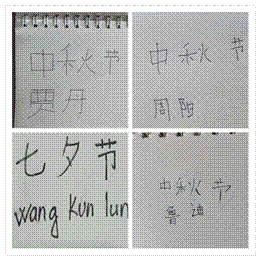 中秋节
贾丹
中秋节
周阳
七夕节
wang Kun lun
中秋节
鲁迪